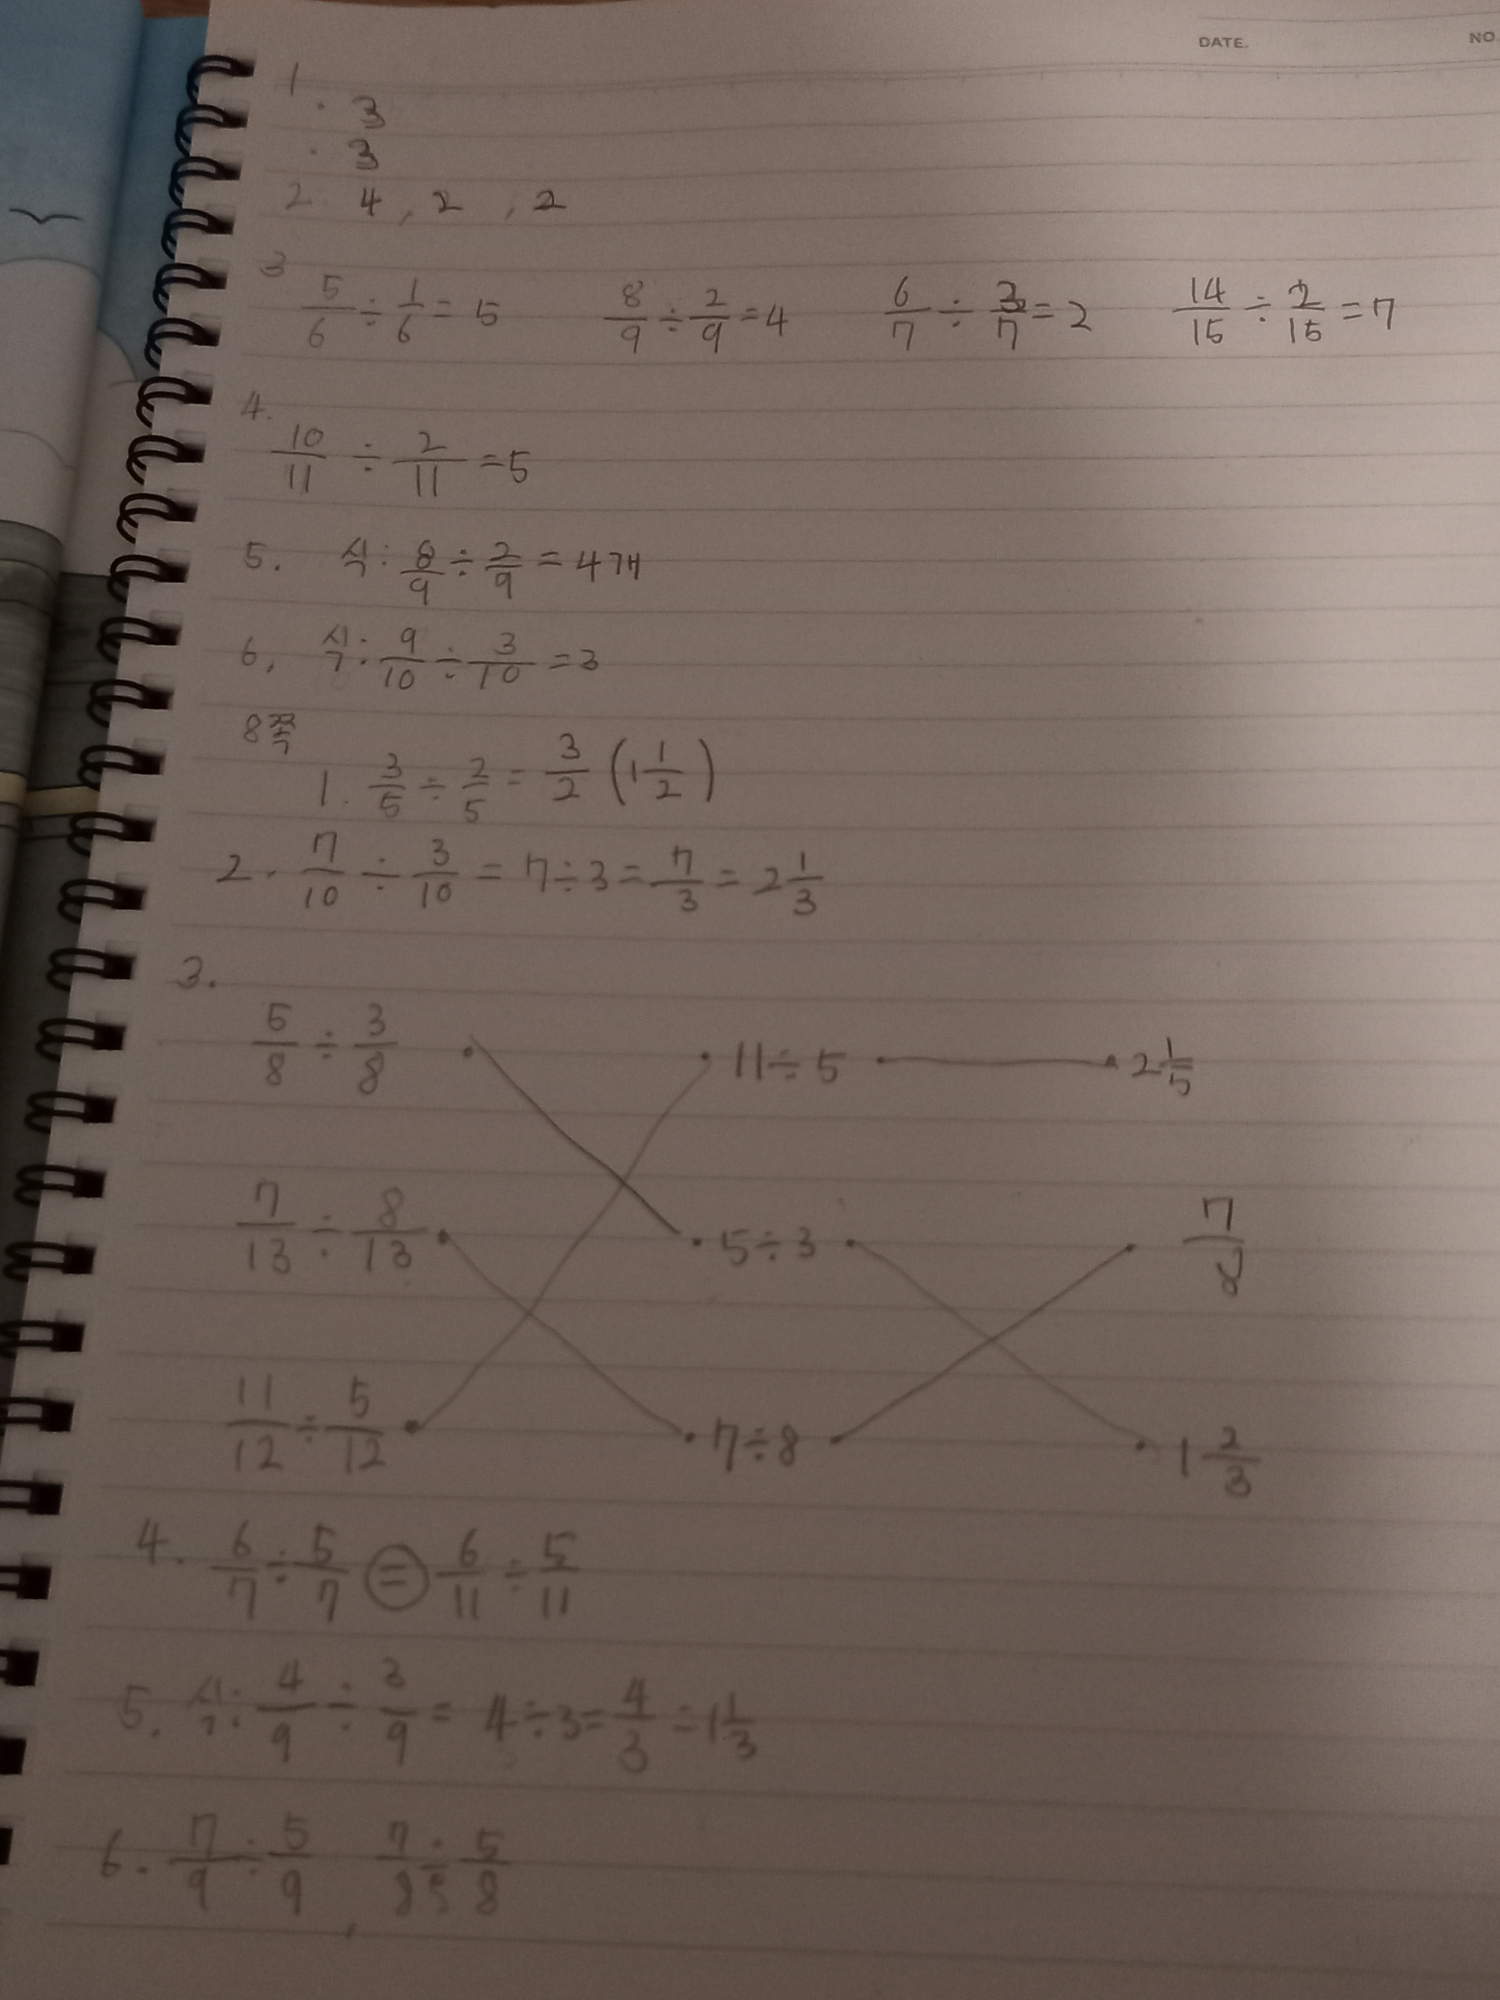 DATE. NO.
1. 3
· 3
2. 4, 2, 2
3 5/6 ÷ 1/6 = 5 8/9 ÷ 2/9 = 4 6/7 ÷ 3/7 = 2 14/15 ÷ 2/15 = 7
4.
10/11 ÷ 2/11 = 5
5. 식: 8/9 ÷ 2/9 = 4개
6, 식: 9/10 ÷ 3/10 = 3
8쪽
1. 3/5 ÷ 2/5 = 3/2 (1 1/2)
2. 7/10 ÷ 3/10 = 7÷3 = 7/3 = 2 1/3
3.
5/8 ÷ 3/8 · · 11÷5 · · 2 1/5
7/13 ÷ 8/13 · · 5÷3 · · 7/8
11/12 ÷ 5/12 · · 7÷8 · · 1 2/3
4. 6/7 ÷ 5/7 = 6/11 ÷ 5/11
5. 식: 4/9 ÷ 3/9 = 4÷3 = 4/3 = 1 1/3
6. 7/9 ÷ 5/9, 7/8 ÷ 5/8